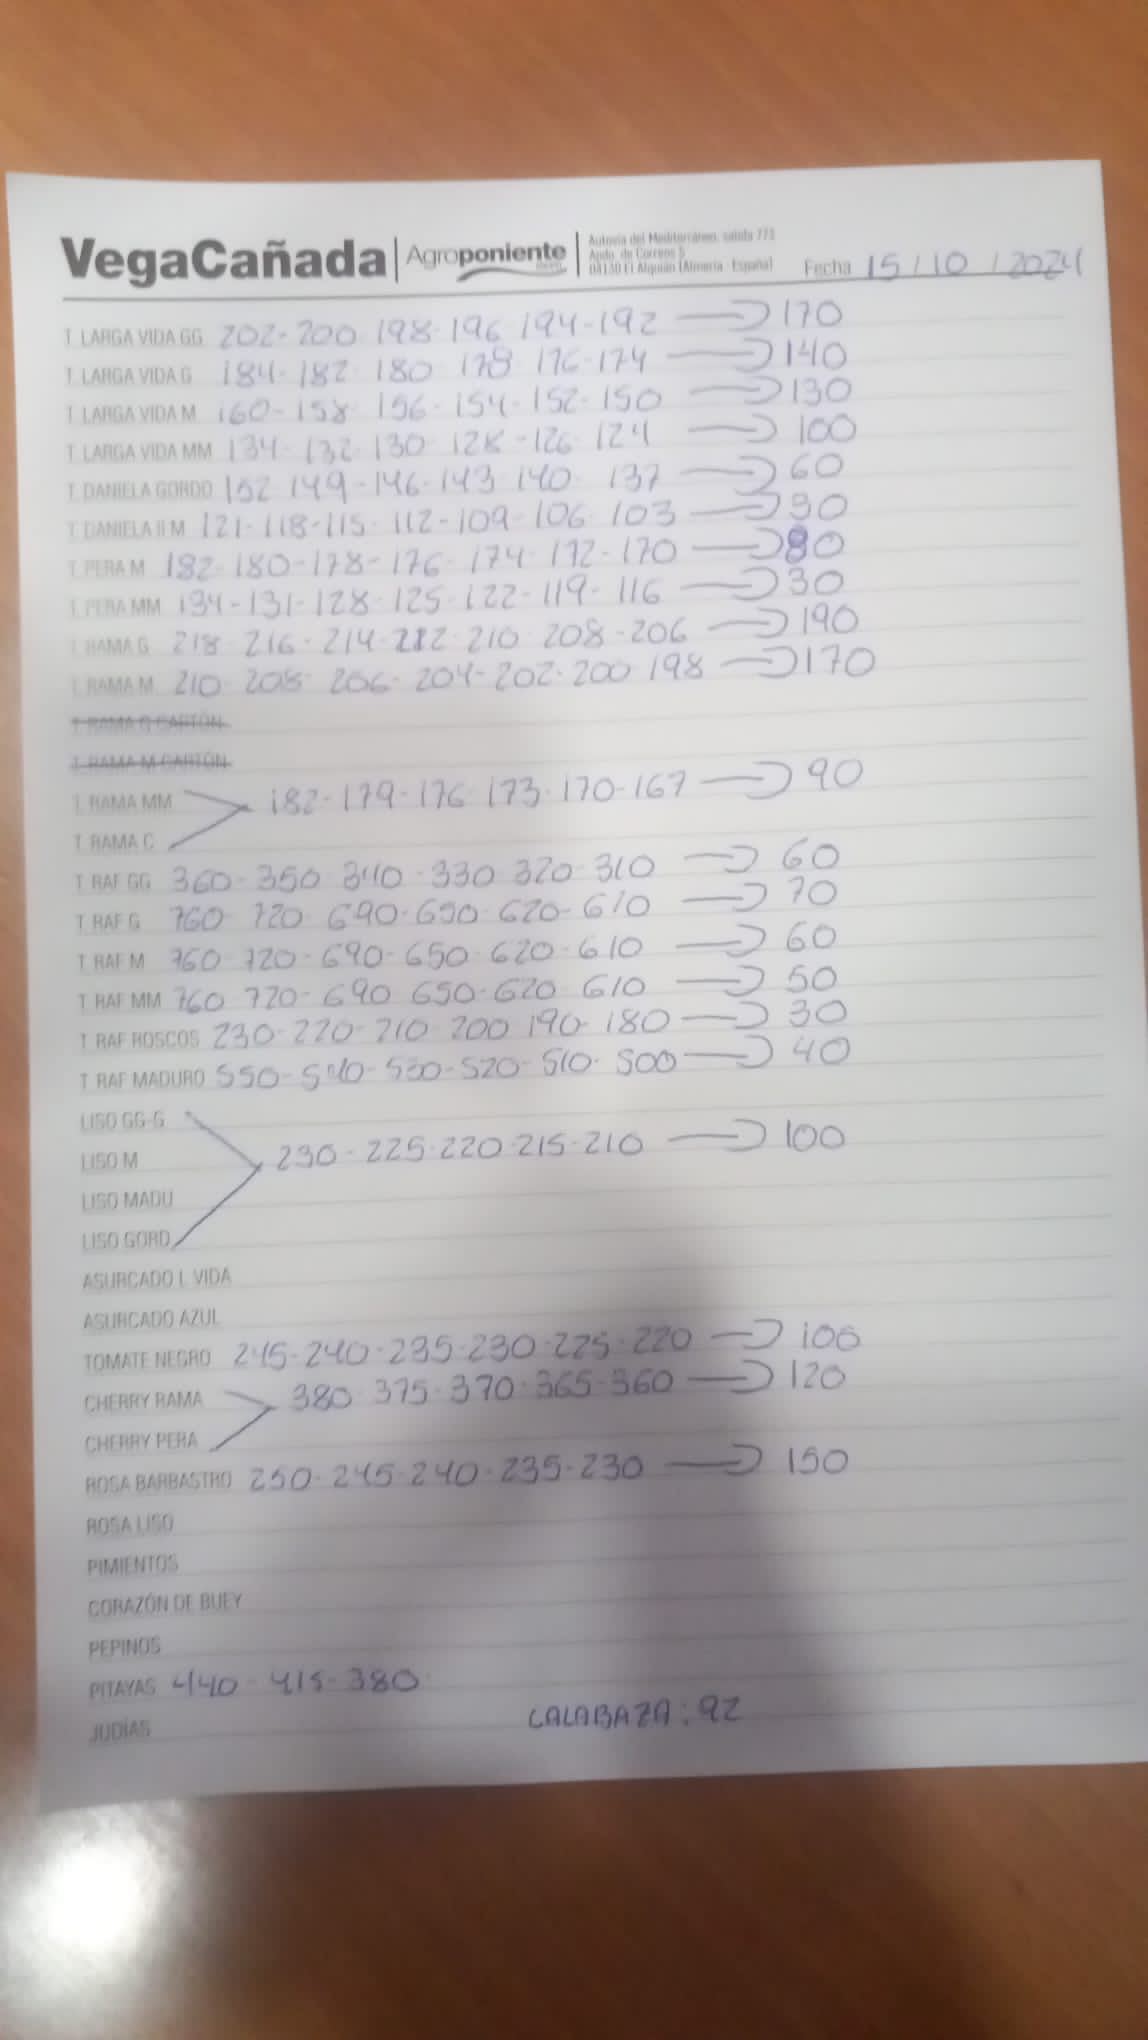 VegaCañada Agroponiente
Autovía del Mediterráneo, salida 773
Apdo. de Correos 5
04130 El Alquián (Almería - España)
Fecha 15/10/2024
T. LARGA VIDA GG 202-200 198-196 194-192 → 170
T. LARGA VIDA G 184-182 180 178 176-174 → 140
T. LARGA VIDA M 160-158 156-154-152-150 → 130
T. LARGA VIDA MM 134-132 130 128-126 124 → 100
T. DANIELA GORDO 152 149-146-143 140 137 → 60
T. DANIELA II M 121-118-115-112-109-106-103 → 30
T. PERA M 182-180-178-176-174-172-170 → 80
T. PERA MM 134-131-128-125-122-119-116 → 30
T. RAMA G 218-216-214-212-210 208-206 → 190
T. RAMA M 210-208-206-204-202-200 198 → 170
T. RAMA G CARTÓN
T. RAMA M CARTÓN
T. RAMA MM 182-179-176 173-170-167 → 90
T. RAMA C
T. RAF GG 360-350 340-330 320-310 → 60
T. RAF G 760 720 690-650-620-610 → 70
T. RAF M 760-720-690-650 620-610 → 60
T. RAF MM 760 720-690 650-620 610 → 50
T. RAF ROSCOS 230-220-210 200 190-180 → 30
T. RAF MADURO 550-540-530-520-510-500 → 40
LISO GG-G
LISO M 230-225-220-215-210 → 100
LISO MADU
LISO GORD
ASURCADO L VIDA
ASURCADO AZUL
TOMATE NEGRO 245-240-235-230-225-220 → 100
CHERRY RAMA 380 375-370-365-360 → 120
CHERRY PERA
ROSA BARBASTRO 250-245-240-235-230 → 150
ROSA LISO
PIMIENTOS
CORAZÓN DE BUEY
PEPINOS
PITAYAS 440-415-380
JUDÍAS CALABAZA: 92